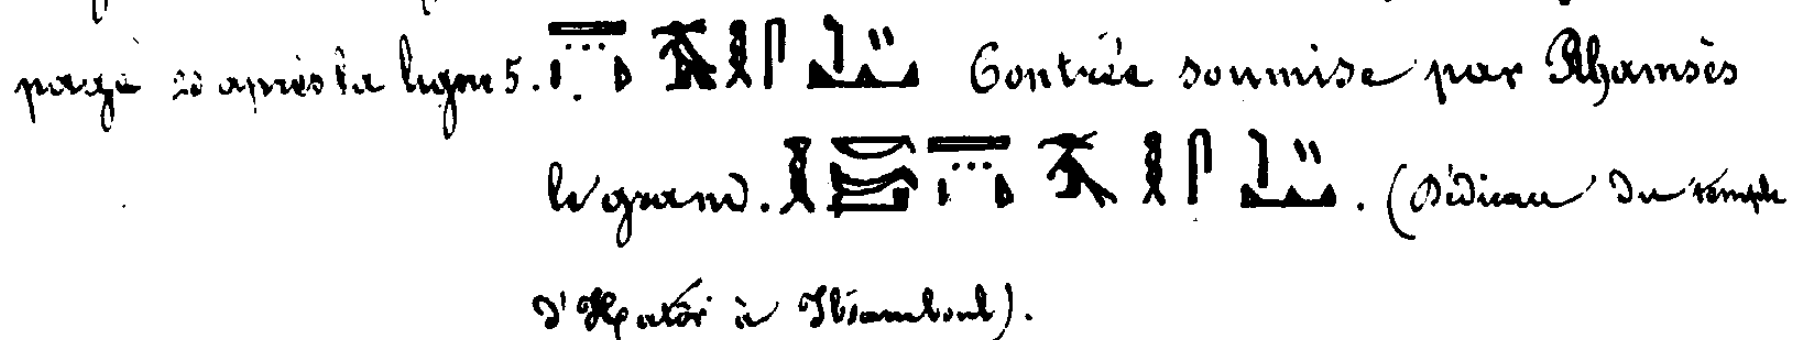 page 20 après la ligne 5. Contrée soumise par Rhamsès
le grand. (Dédicace du temple
d'Hathôr à Ibsamboul).